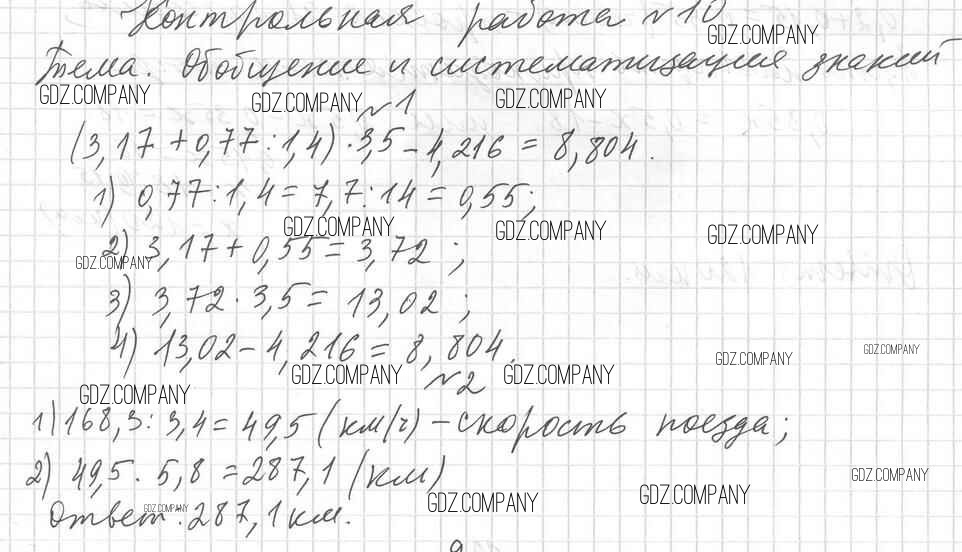 Контрольная работа №10
GDZ.COMPANY
Тема. Обобщение и систематизация знаний
GDZ.COMPANY GDZ.COMPANY GDZ.COMPANY
№1
(3,17 + 0,77 : 1,4) · 3,5 - 4,216 = 8,804.
1) 0,77 : 1,4 = 7,7 : 14 = 0,55;
GDZ.COMPANY GDZ.COMPANY GDZ.COMPANY
2) 3,17 + 0,55 = 3,72;
GDZ.COMPANY
3) 3,72 · 3,5 = 13,02;
4) 13,02 - 4,216 = 8,804.
GDZ.COMPANY GDZ.COMPANY
GDZ.COMPANY GDZ.COMPANY
№2
GDZ.COMPANY
1) 168,3 : 3,4 = 49,5 (км/ч) - скорость поезда;
2) 49,5 · 5,8 = 287,1 (км)
GDZ.COMPANY
GDZ.COMPANY GDZ.COMPANY
Ответ: 287,1 км.
GDZ.COMPANY